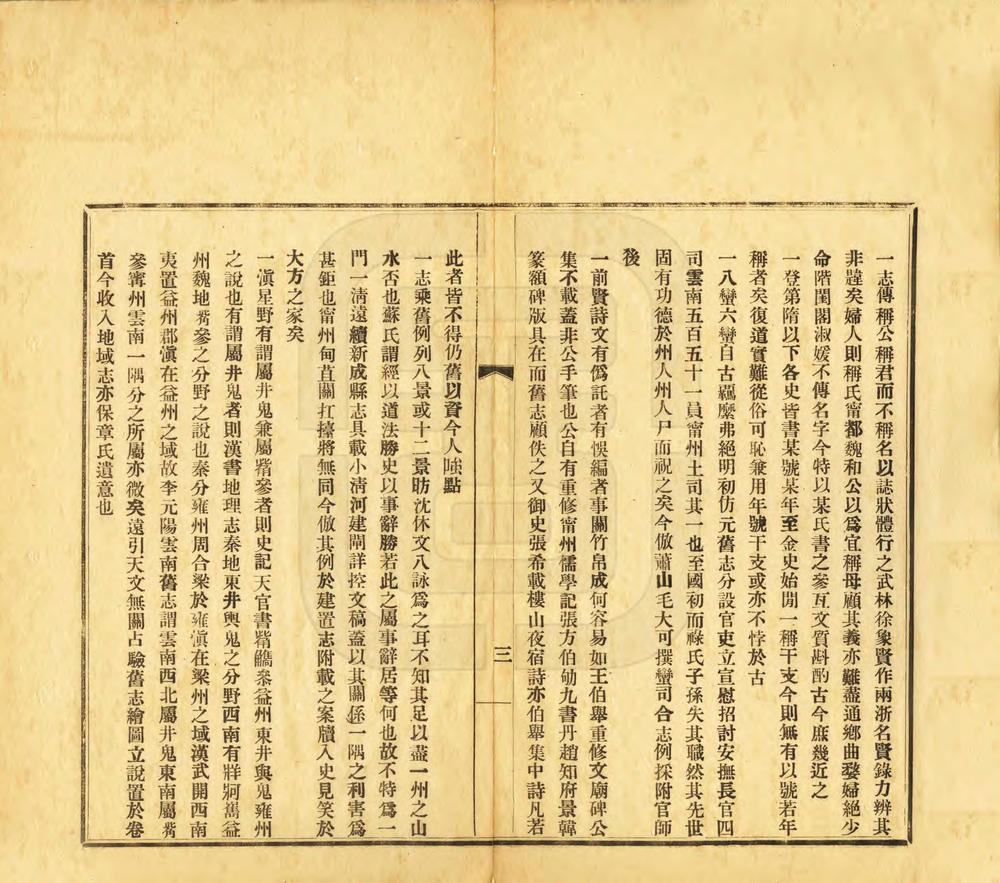 一志傳稱公稱君而不稱名以誌狀體行之武林徐象賢作兩浙名賢錄力辨其
非韙矣婦人則稱氏甯都魏和公以爲宜稱母顧其義亦難盡通鄉曲嫠婦絕少
命階閨閣淑媛不傳名字今特以某氏書之參互文質斟酌古今庶幾近之
一登第隋以下各史皆書某號某年至金史始間一稱干支今則無有以號若年
稱者矣復道實難從俗可恥兼用年號干支或亦不悖於古
一八蠻六蠻自古羈縻弗絕明初仿元舊志分設官吏立宣慰招討安撫長官四
司雲南五百五十一員甯州土司其一也至國初而祿氏子孫失其職然其先世
固有功德於州人州人尸而祝之矣今倣蕭山毛大可撰蠻司合志例採附官師
後
一前賢詩文有僞託者有悞編者事關竹帛成何容易如王伯舉重修文廟碑公
集不載蓋非公手筆也公自有重修甯州儒學記張方伯勄九書丹趙知府景韓
篆額碑版具在而舊志顧佚之又御史張希載樓山夜宿詩亦伯舉集中詩凡若
三
此者皆不得仍舊以資今人嗤點
一志乘舊例列八景或十二景昉沈休文八詠爲之耳不知其足以盡一州之山
水否也蘇氏謂經以道法勝史以事辭勝若此之屬事辭居等何也故不特爲一
門一清遠續新成縣志具載小清河建閘詳控文稿蓋以其關係一隅之利害爲
甚鉅也甯州甸苴關扛擡將無同今倣其例於建置志附載之案牘入史見笑於
大方之家矣
一滇星野有謂屬井鬼兼屬觜參者則史記天官書觜觿參益州東井與鬼雍州
之說也有謂屬井鬼者則漢書地理志秦地東井輿鬼之分野西南有牂牁嶲益
州魏地觜參之分野之說也秦分雍州周合梁於雍滇在梁州之域漢武開西南
夷置益州郡滇在益州之域故李元陽雲南舊志謂雲南西北屬井鬼東南屬觜
參甯州雲南一隅分之所屬亦微矣遠引天文無關占驗舊志繪圖立說置於卷
首今收入地域志亦保章氏遺意也